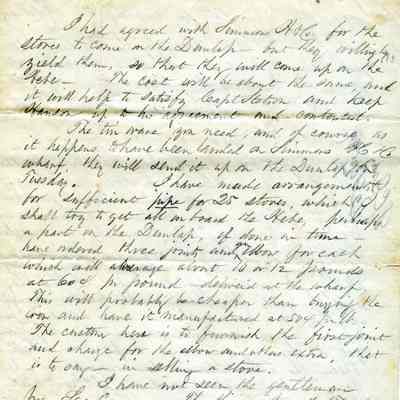 I had agreed with Simmons H & Co, for the
stoves to come on the Dunlap - but they willingly
yield them, so that they will come up on the
Hebe - The cost will be about the same, and
it will help to satisfy Capt Stetson and keep
Hanson up to his agreement and contented.
The tin ware you need, and of course, as
it happens to have been landed on Simmons H & Co
wharf, they will send it up on the Dunlap on
Tuesday. I have made arrangements
for sufficient pipe for 25 stoves, which I
shall try to get all on board the Hebe, perhaps
a part on the Dunlap, if done in time - I
have ordered three joints and an elbow for each
which will average about 10 or 12 pounds
at 60¢ pr pound - delivered at the wharf.
This will probably be cheaper than buying the
iron and have it manufactured at 50¢ pr lb.
The custom here is to furnish the first joint
and charge for the elbow and others extra, that
is to say - in selling a stove.
I have not seen the gentleman